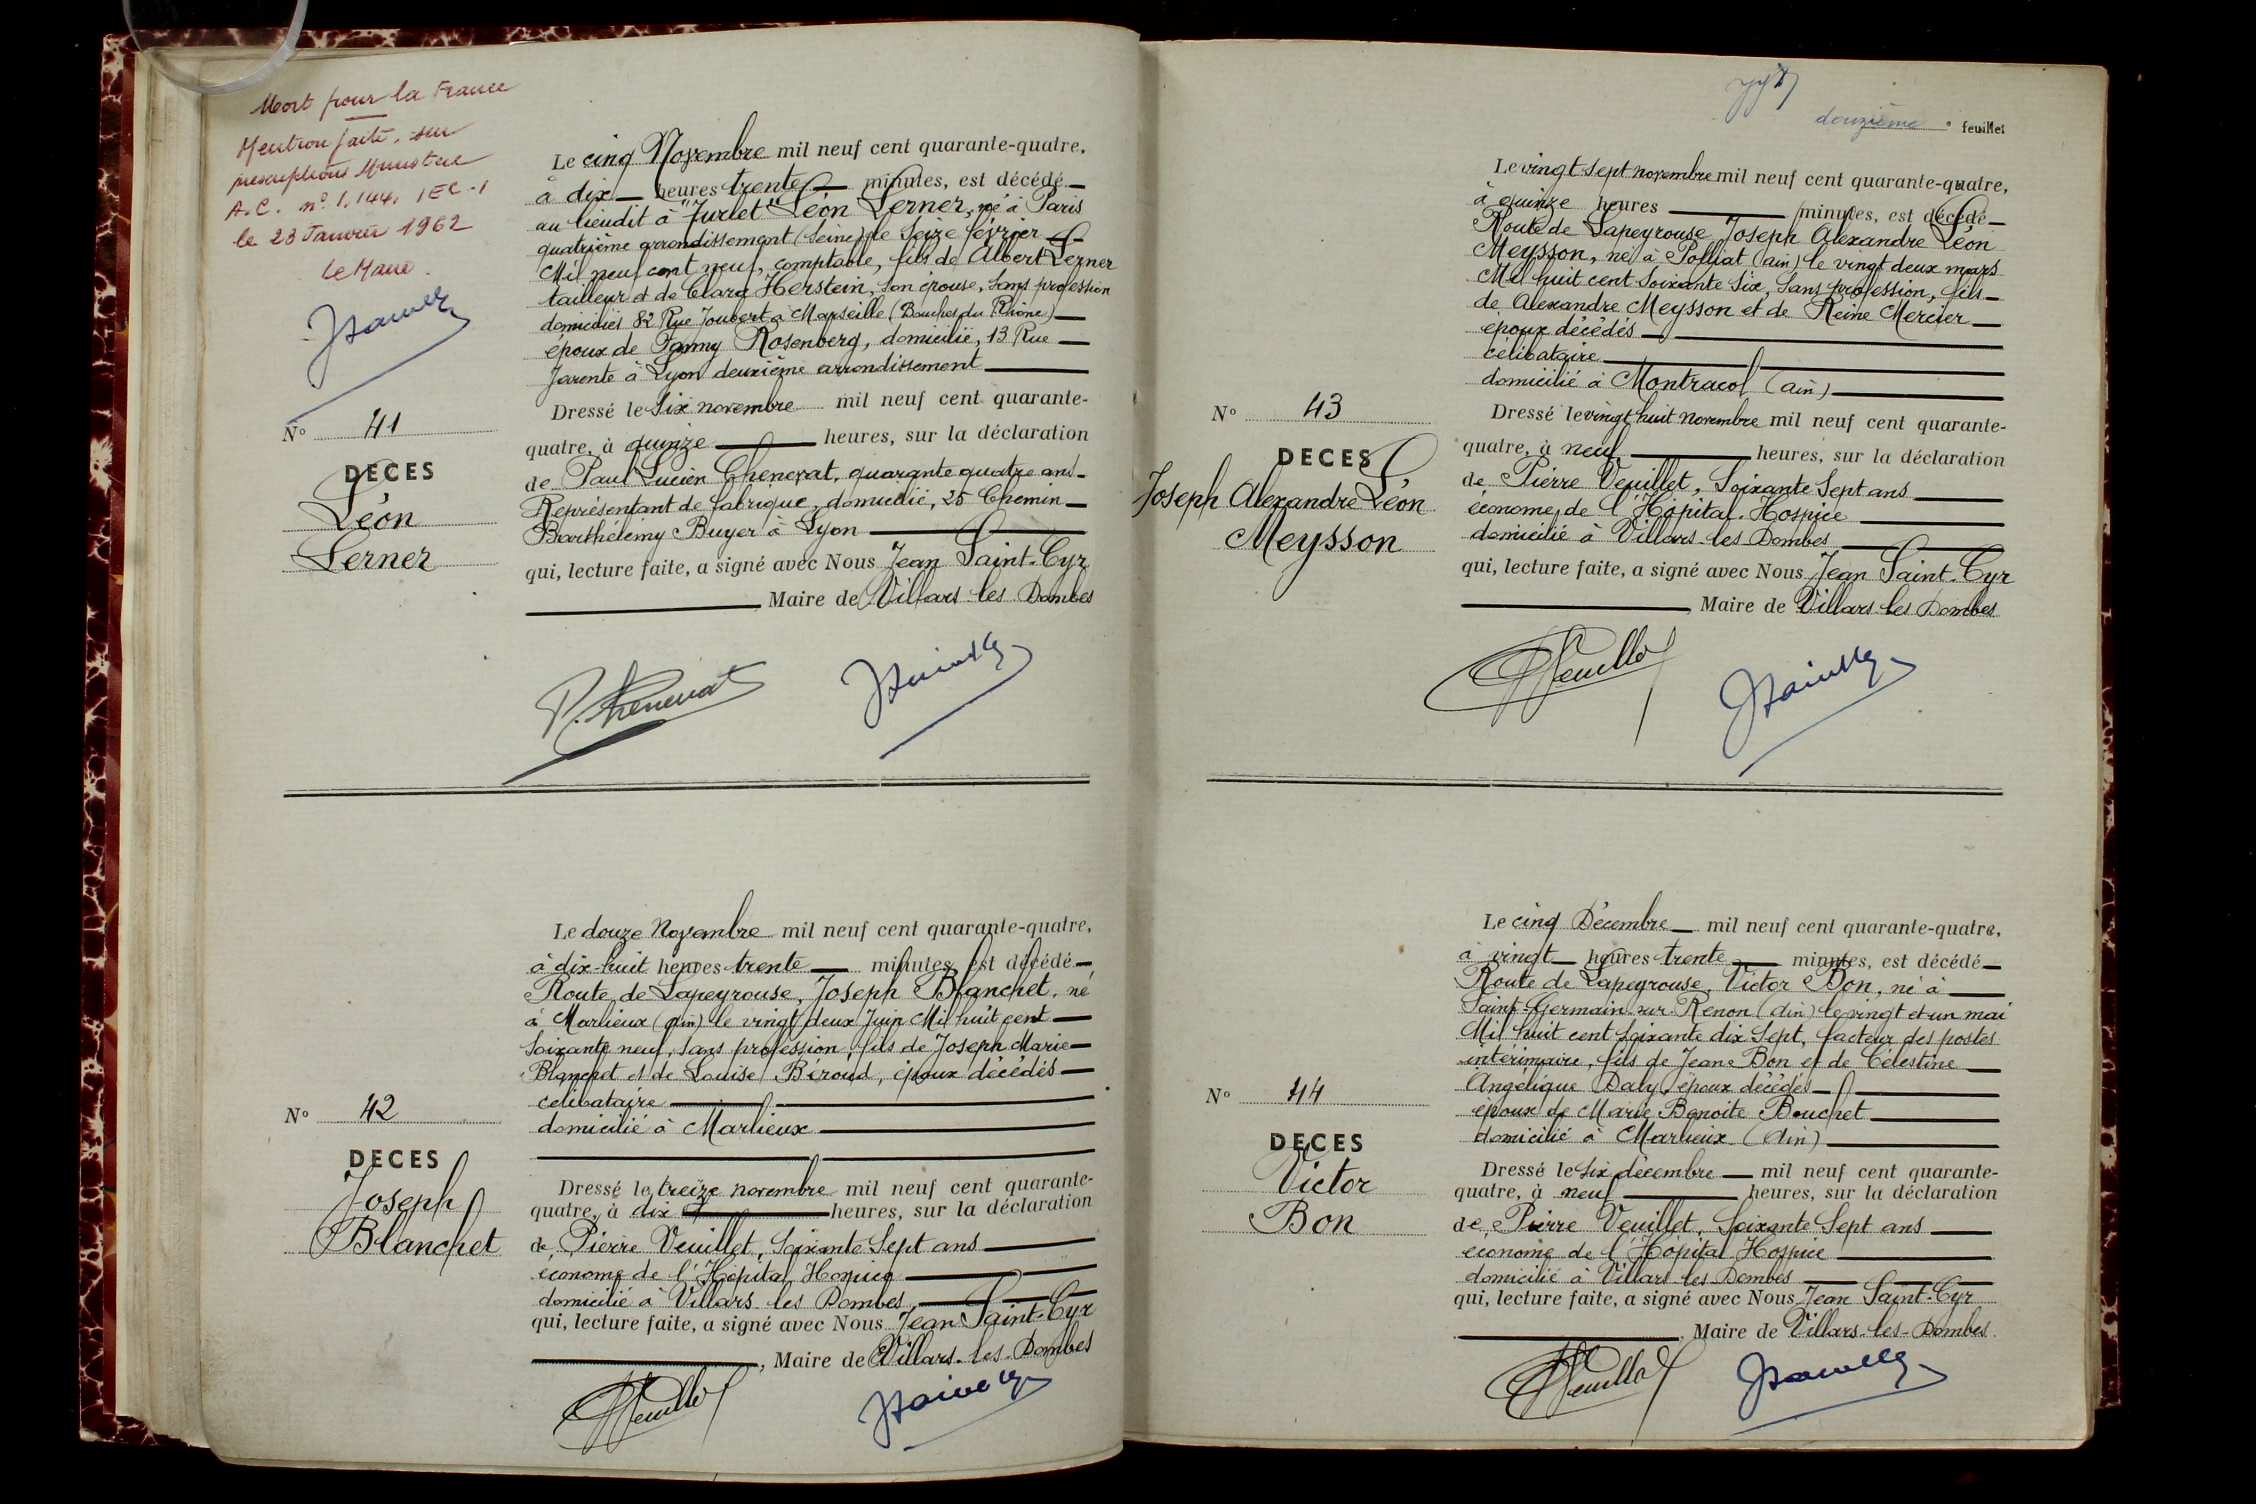 Mort pour la France
Mention faite, sur
prescriptions Ministère
A.C. n° 1.144. IEC-1
le 23 Janvier 1962
Le Maire.
N° 41
DECES
Léon
Lerner
Le cinq Novembre mil neuf cent quarante-quatre,
à dix heures trente minutes, est décédé
au lieudit à "Jurlet" Léon Lerner, né à Paris
quatrième arrondissement (Seine) le Seize février
Mil neuf cent neuf, comptable, fils de Albert Lerner
tailleur et de Clara Herstein, son épouse, sans profession
domiciliés 82 Rue Joubert à Marseille (Bouches du Rhône)
époux de Fanny Rosenberg, domicilié, 13 Rue
Jarente à Lyon deuxième arrondissement
Dressé le six novembre mil neuf cent quarante-
quatre, à quinze heures, sur la déclaration
de Paul Lucien Chenevat, quarante quatre ans
Représentant de fabrique, domicilié, 25 Chemin
Barthélemy Buyer à Lyon
qui, lecture faite, a signé avec Nous Jean Saint-Cyr
Maire de Villars les Dombes
P. Chenevat
N° 42
DECES
Joseph
Blanchet
Le douze Novembre mil neuf cent quarante-quatre,
à dix-huit heures trente minutes, est décédé
Route de Lapeyrouse, Joseph Blanchet, né
à Marlieux (ain) le vingt deux Juin Mil huit cent
soixante neuf, sans profession, fils de Joseph Marie
Blanchet et de Louise Béroud, époux décédés
célibataire
domicilié à Marlieux
Dressé le treize novembre mil neuf cent quarante-
quatre, à dix heures, sur la déclaration
de Pierre Veuillet, Soixante Sept ans
économe de l'Hôpital Hospice
domicilié à Villars les Dombes
qui, lecture faite, a signé avec Nous Jean Saint-Cyr
, Maire de Villars-les-Dombes
douzième feuillet
N° 43
DECES
Joseph Alexandre Léon
Meysson
Le vingt-sept novembre mil neuf cent quarante-quatre,
à quinze heures minutes, est décédé
Route de Lapeyrouse Joseph Alexandre Léon
Meysson, né à Polliat (ain) le vingt deux mars
Mil huit cent soixante six, sans profession, fils
de Alexandre Meysson et de Reine Mercier
époux décédés
célibataire
domicilié à Montracol (ain)
Dressé le vingt huit novembre mil neuf cent quarante-
quatre, à neuf heures, sur la déclaration
de Pierre Veuillet, Soixante Sept ans
économe de l'Hôpital-Hospice
domicilié à Villars-les Dombes
qui, lecture faite, a signé avec Nous Jean Saint-Cyr
, Maire de Villars les Dombes
N° 44
DECES
Victor
Bon
Le cinq Décembre mil neuf cent quarante-quatre,
à vingt heures trente minutes, est décédé
Route de Lapeyrouse, Victor Bon, né à
Saint-Germain sur Renon (Ain) le vingt et un mai
Mil huit cent soixante dix sept, facteur des postes
intérimaire, fils de Jeane Bon et de Célestine
Angélique Daly, époux décédés
époux de Marie Benoite Bouchet
domicilié à Marlieux (Ain)
Dressé le six décembre mil neuf cent quarante-
quatre, à neuf heures, sur la déclaration
de Pierre Veuillet, Soixante Sept ans
économe de l'Hôpital Hospice
domicilié à Villars les Dombes
qui, lecture faite, a signé avec Nous Jean Saint-Cyr
, Maire de Villars-les-Dombes